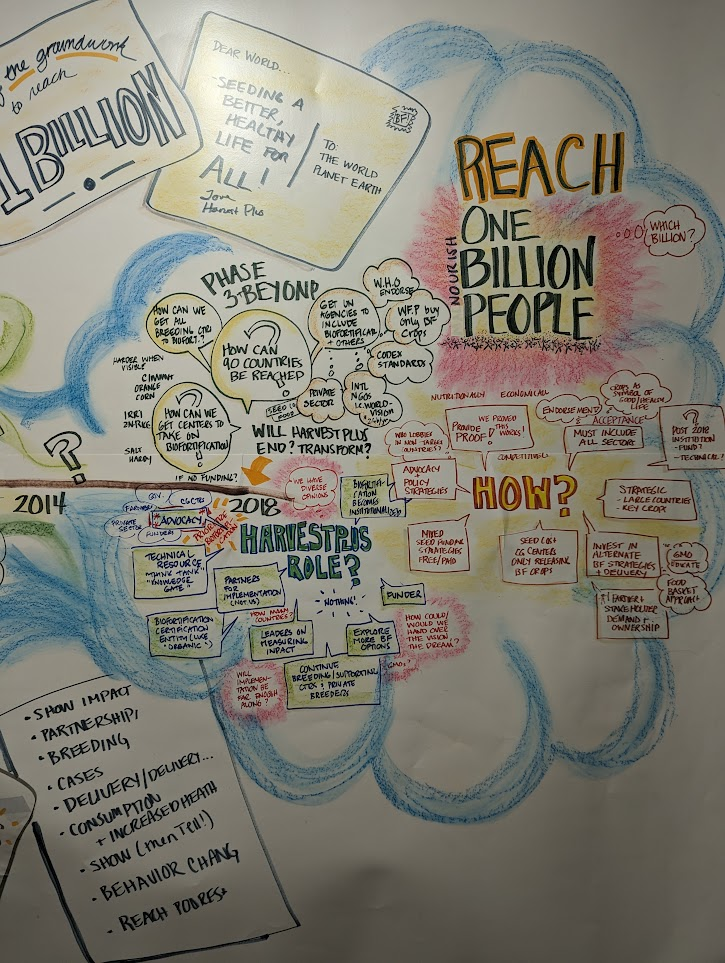 the groundwork
to reach
1 BILLION
DEAR WORLD...
SEEDING A
BETTER,
HEALTHY
LIFE FOR
ALL!
Love
Harvest Plus
TO:
THE WORLD
PLANET EARTH
BF!
REACH
NOURISH
ONE
BILLION
PEOPLE
WHICH
BILLION?
PHASE
3+BEYOND
HOW CAN WE
GET ALL
BREEDING CTRS
TO BIOFORT.?
HOW CAN
90 COUNTRIES
BE REACHED
GET UN
AGENCIES TO
INCLUDE
BIOFORTIFICATI
+ OTHERS
W.H.O
ENDORSE
W.F.P buy
only BF
CROPS
CODEX
STANDARDS
PRIVATE
SECTOR
INT'L
NGOS
i.e. WORLD
VISION
HARDER WHEN
VISIBLE
CIMMYT
ORANGE
CORN
IRRI
ZN RICE
SALT
HARDY
HOW CAN WE
GET CENTERS
TO TAKE ON
BIOFORTIFICATION
!
WILL HARVESTPLUS
END? TRANSFORM?
IF NO FUNDING?
?
2014
2018
WE HAVE
DIVERSE
OPINIONS
BIOFORTIFI-
CATION
BECOMES
INSTITUTIONALIZED
GOV.
CG CTRS
FARMERS
PRIVATE
SECTOR
FUNDERS
ADVOCACY
HARVESTPLUS
ROLE?
TECHNICAL
RESOURCE
"THINK TANK"
"KNOWLEDGE
GATE"
PARTNERS
FOR
IMPLEMENTATION
(NOT US)
NOTHING!
FUNDER
BIOFORTIFICATION
CERTIFICATION
ENTITY (LIKE
"ORGANIC")
HOW MANY
COUNTRIES?
LEADERS ON
MEASURING
IMPACT
EXPLORE
MORE BF
OPTIONS
HOW COULD/
WOULD WE
HAND OVER
THE VISION
THE DREAM!?
GMOs?
CONTINUE
BREEDING/SUPPORTING
CTRS & PRIVATE
BREEDERS
WILL
IMPLEMEN-
TATION BE
FAR ENOUGH
ALONG?
NUTRITIONALLY ECONOMICAL
WE PROVED
THIS WORKS!
PROVIDE
PROOF
COMPETITIVELY
WHO LOBBIES
IN NON TARGET
COUNTRIES?
ADVOCACY
+
POLICY
STRATEGIES
HOW?
CROPS AS
SYMBOL OF
GOOD/HEALTH
LIFE
ENDORSEMENT
& ACCEPTANCE
MUST INCLUDE
ALL SECTORS
?
POST 2018
INSTITUTION
- FUND?
- TECHNICAL?
STRATEGIC
- LARGE COUNTRIES
- KEY CROPS
MIXED
SEED FUNDAR
STRATEGIES
FREE/PAID
CG CENTERS
ONLY RELEASING
BF CROPS
INVEST IN
ALTERNATE
BF STRATEGIES
+ DELIVERY
GMO
EDUCATE
FOOD
BASKET
APPROACH
↑ PARTNER +
STAKEHOLDER
DEMAND +
OWNERSHIP
• SHOW IMPACT
• PARTNERSHIP,
• BREEDING
• CASES
• DELIVERY/DELIVERY...
• CONSUMPTION
+ INCREASED HEATH
• SHOW (then Tell!)
• BEHAVIOR CHANG
• REACH POOREST